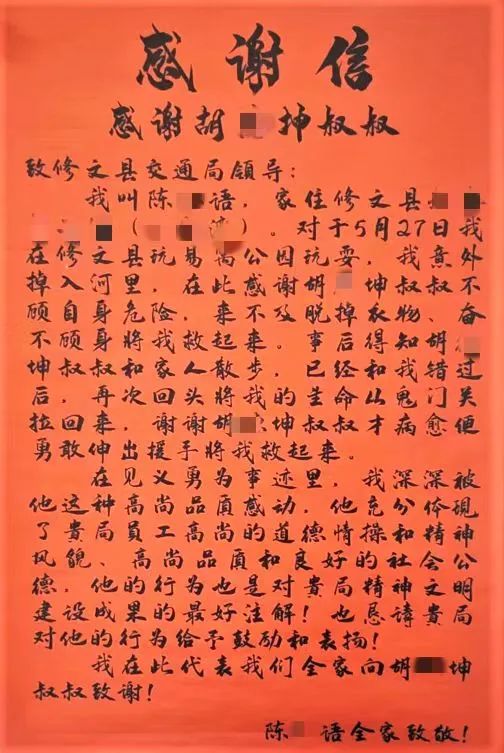 感谢信
感谢胡坤叔叔
致修文县交通局领导：
我叫陈语，家住修文县
（）。对于5月27日我
在修文县玩易窝公园玩耍，我意外
掉入河里，在此感谢胡坤叔叔不
顾自身危险，来不及脱掉衣物、奋
不顾身将我救起来。事后得知胡
坤叔叔和家人散步，已经和我错过
后，再次回头将我的生命从鬼门关
拉回来，谢谢胡坤叔叔才病愈便
勇敢伸出援手将我救起来。
在见义勇为事迹里，我深深被
他这种高尚品质感动，他充分体现
了贵局员工高尚的道德情操和精神
风貌、高尚品质和良好的社会公
德，他的行为也是对贵局精神文明
建设成果的最好注解！也恳请贵局
对他的行为给予鼓励和表扬！
我在此代表我们全家向胡坤
叔叔致谢！
陈语全家致敬！